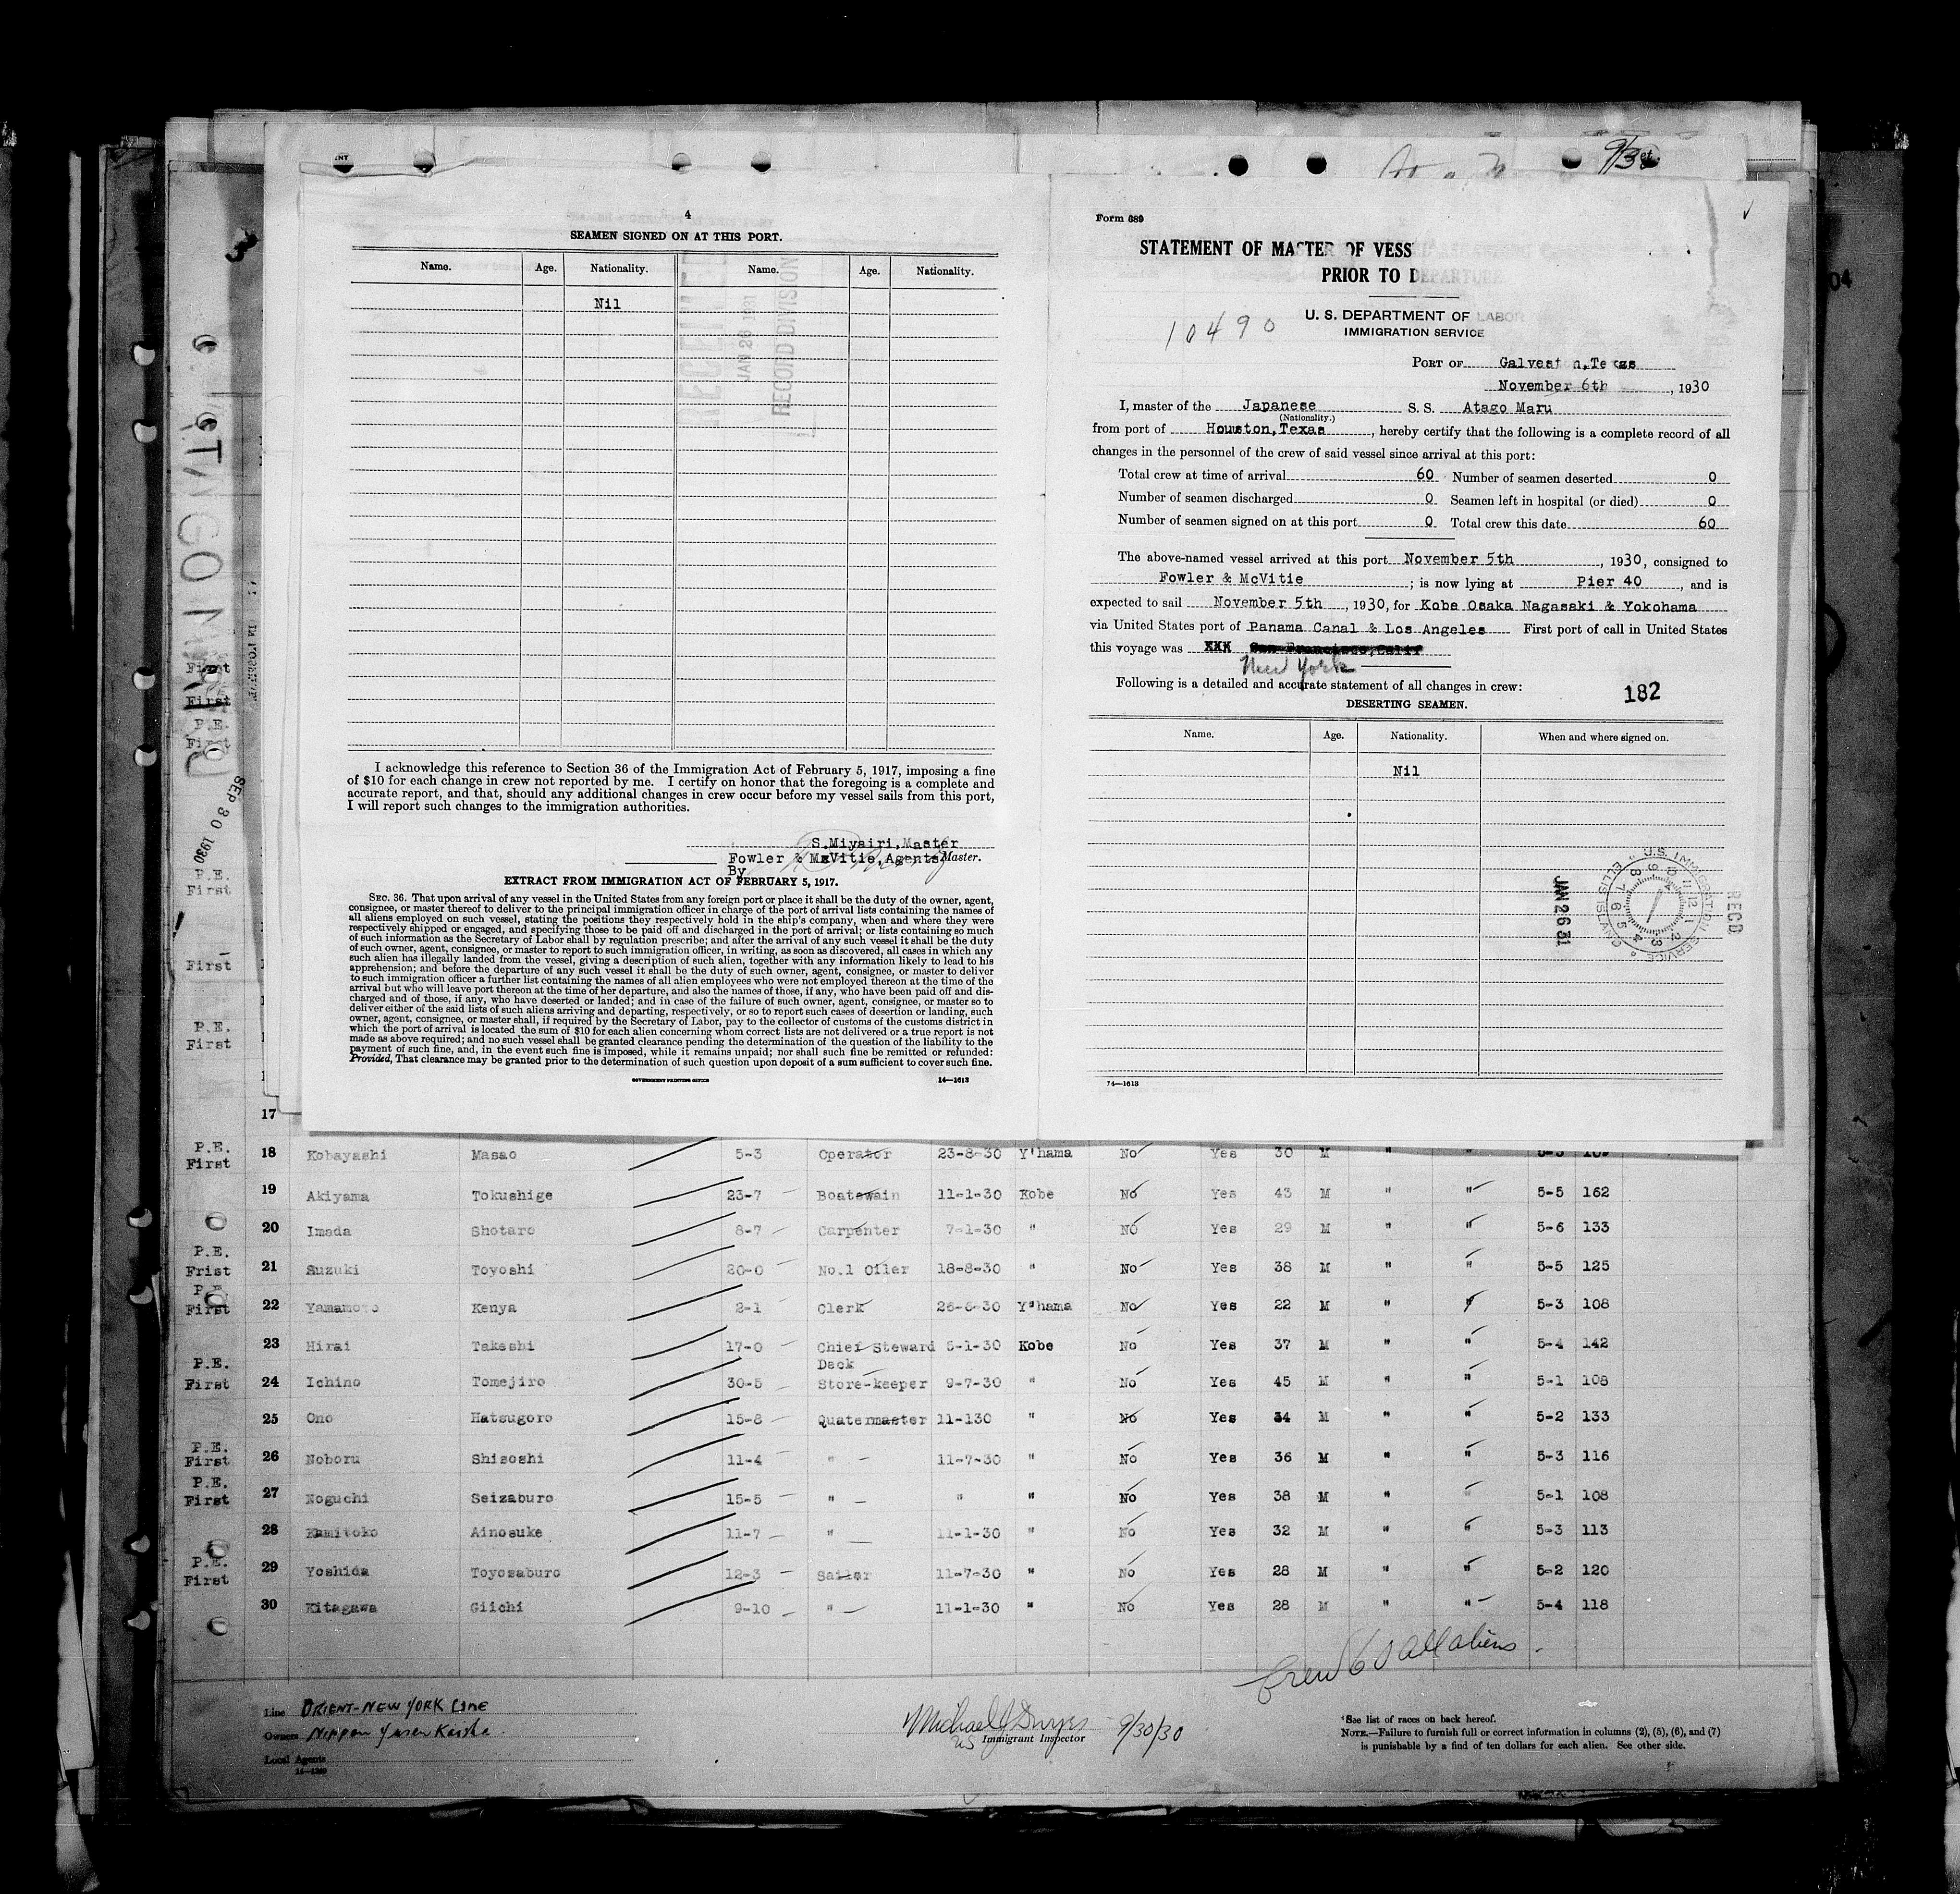 4
SEAMEN SIGNED ON AT THIS PORT.
Name. Age. Nationality. Name. Age. Nationality.
Nil
JAN 26 1931
RECORD DIVISION
I acknowledge this reference to Section 36 of the Immigration Act of February 5, 1917, imposing a fine
of $10 for each change in crew not reported by me. I certify on honor that the foregoing is a complete and
accurate report, and that, should any additional changes in crew occur before my vessel sails from this port,
I will report such changes to the immigration authorities.
S.Miyairi,Master
Fowler & McVitie,Agents Master.
By
EXTRACT FROM IMMIGRATION ACT OF FEBRUARY 5, 1917.
SEC. 36. That upon arrival of any vessel in the United States from any foreign port or place it shall be the duty of the owner, agent,
consignee, or master thereof to deliver to the principal immigration officer in charge of the port of arrival lists containing the names of
all aliens employed on such vessel, stating the positions they respectively hold in the ship's company, when and where they were
respectively shipped or engaged, and specifying those to be paid off and discharged in the port of arrival; or lists containing so much
of such information as the Secretary of Labor shall by regulation prescribe; and after the arrival of any such vessel it shall be the duty
of such owner, agent, consignee, or master to report to such immigration officer, in writing, as soon as discovered, all cases in which any
such alien has illegally landed from the vessel, giving a description of such alien, together with any information likely to lead to his
apprehension; and before the departure of any such vessel it shall be the duty of such owner, agent, consignee, or master to deliver
to such immigration officer a further list containing the names of all alien employees who were not employed thereon at the time of the
arrival but who will leave port thereon at the time of her departure, and also the names of those, if any, who have been paid off and dis-
charged and of those, if any, who have deserted or landed; and in case of the failure of such owner, agent, consignee, or master so to
deliver either of the said lists of such aliens arriving and departing, respectively, or so to report such cases of desertion or landing, such
owner, agent, consignee, or master shall, if required by the Secretary of Labor, pay to the collector of customs of the customs district in
which the port of arrival is located the sum of $10 for each alien concerning whom correct lists are not delivered or a true report is not
made as above required; and no such vessel shall be granted clearance pending the determination of the question of the liability to the
payment of such fine, and, in the event such fine is imposed, while it remains unpaid; nor shall such fine be remitted or refunded:
Provided, That clearance may be granted prior to the determination of such question upon deposit of a sum sufficient to cover such fine.
GOVERNMENT PRINTING OFFICE 14—1613
Form 689
STATEMENT OF MASTER OF VESS
PRIOR TO DEPARTURE
U. S. DEPARTMENT OF LABOR
IMMIGRATION SERVICE
10490
PORT OF Galveston,Texas
November 6th, 1930
I, master of the Japanese S. S. Atago Maru
(Nationality.)
from port of Houston,Texas, hereby certify that the following is a complete record of all
changes in the personnel of the crew of said vessel since arrival at this port:
Total crew at time of arrival 60 Number of seamen deserted 0
Number of seamen discharged 0 Seamen left in hospital (or died) 0
Number of seamen signed on at this port 0 Total crew this date 60
The above-named vessel arrived at this port November 5th, 1930, consigned to
Fowler & McVitie; is now lying at Pier 40, and is
expected to sail November 5th, 1930, for Kobe Osaka Nagasaki & Yokohama
via United States port of Panama Canal & Los Angeles First port of call in United States
this voyage was XXX San Francisco,Calif
New York
Following is a detailed and accurate statement of all changes in crew:
182
DESERTING SEAMEN.
Name. Age. Nationality. When and where signed on.
Nil
U.S. IMMIGRATION SERVICE ELLIS ISLAND
JAN 26 31
REC'D
14—1613
SEP 30 1930
17
P.E. First 18 Kobayashi Masao 5-3 Operator 23-8-30 Y'hama No Yes 30 M " " 5-3 109
19 Akiyama Tokushige 23-7 Boatswain 11-1-30 Kobe No Yes 43 M " " 5-5 162
20 Imada Shotaro 8-7 Carpenter 7-1-30 " No Yes 29 M " " 5-6 133
P.E. Frist 21 Suzuki Toyoshi 20-0 No.1 Oiler 18-8-30 " No Yes 38 M " " 5-5 125
P.E. First 22 Yamamoto Kenya 2-1 Clerk 26-6-30 Y'hama No Yes 22 M " " 5-3 108
23 Hirai Takeshi 17-0 Chief Steward 5-1-30 Kobe No Yes 37 M " " 5-4 142
P.E. First 24 Ichino Tomejiro 30-5 Deck Store-keeper 9-7-30 " No Yes 45 M " " 5-1 108
25 Ono Hatsugoro 15-8 Quatermaster 11-130 " No Yes 34 M " " 5-2 133
P.E. First 26 Noboru Shisoshi 11-4 " 11-7-30 " No Yes 36 M " " 5-3 116
P.E. First 27 Noguchi Seizaburo 15-5 " " " No Yes 38 M " " 5-1 108
28 Kamitoko Ainosuke 11-7 " 11-1-30 " No Yes 32 M " " 5-3 113
P.E. First 29 Yoshida Toyosaburo 12-3 Sailor 11-7-30 " No Yes 28 M " " 5-2 120
30 Kitagawa Giichi 9-10 " 11-1-30 " No Yes 28 M " " 5-4 118
Crew 60 all aliens.
Line ORIENT-NEW YORK LINE
Owners Nippon Yusen Kaisha.
Local Agents
Michael J Dwyer 9/30/30
US Immigrant Inspector
¹See list of races on back hereof.
NOTE.—Failure to furnish full or correct information in columns (2), (5), (6), and (7)
is punishable by a find of ten dollars for each alien. See other side.